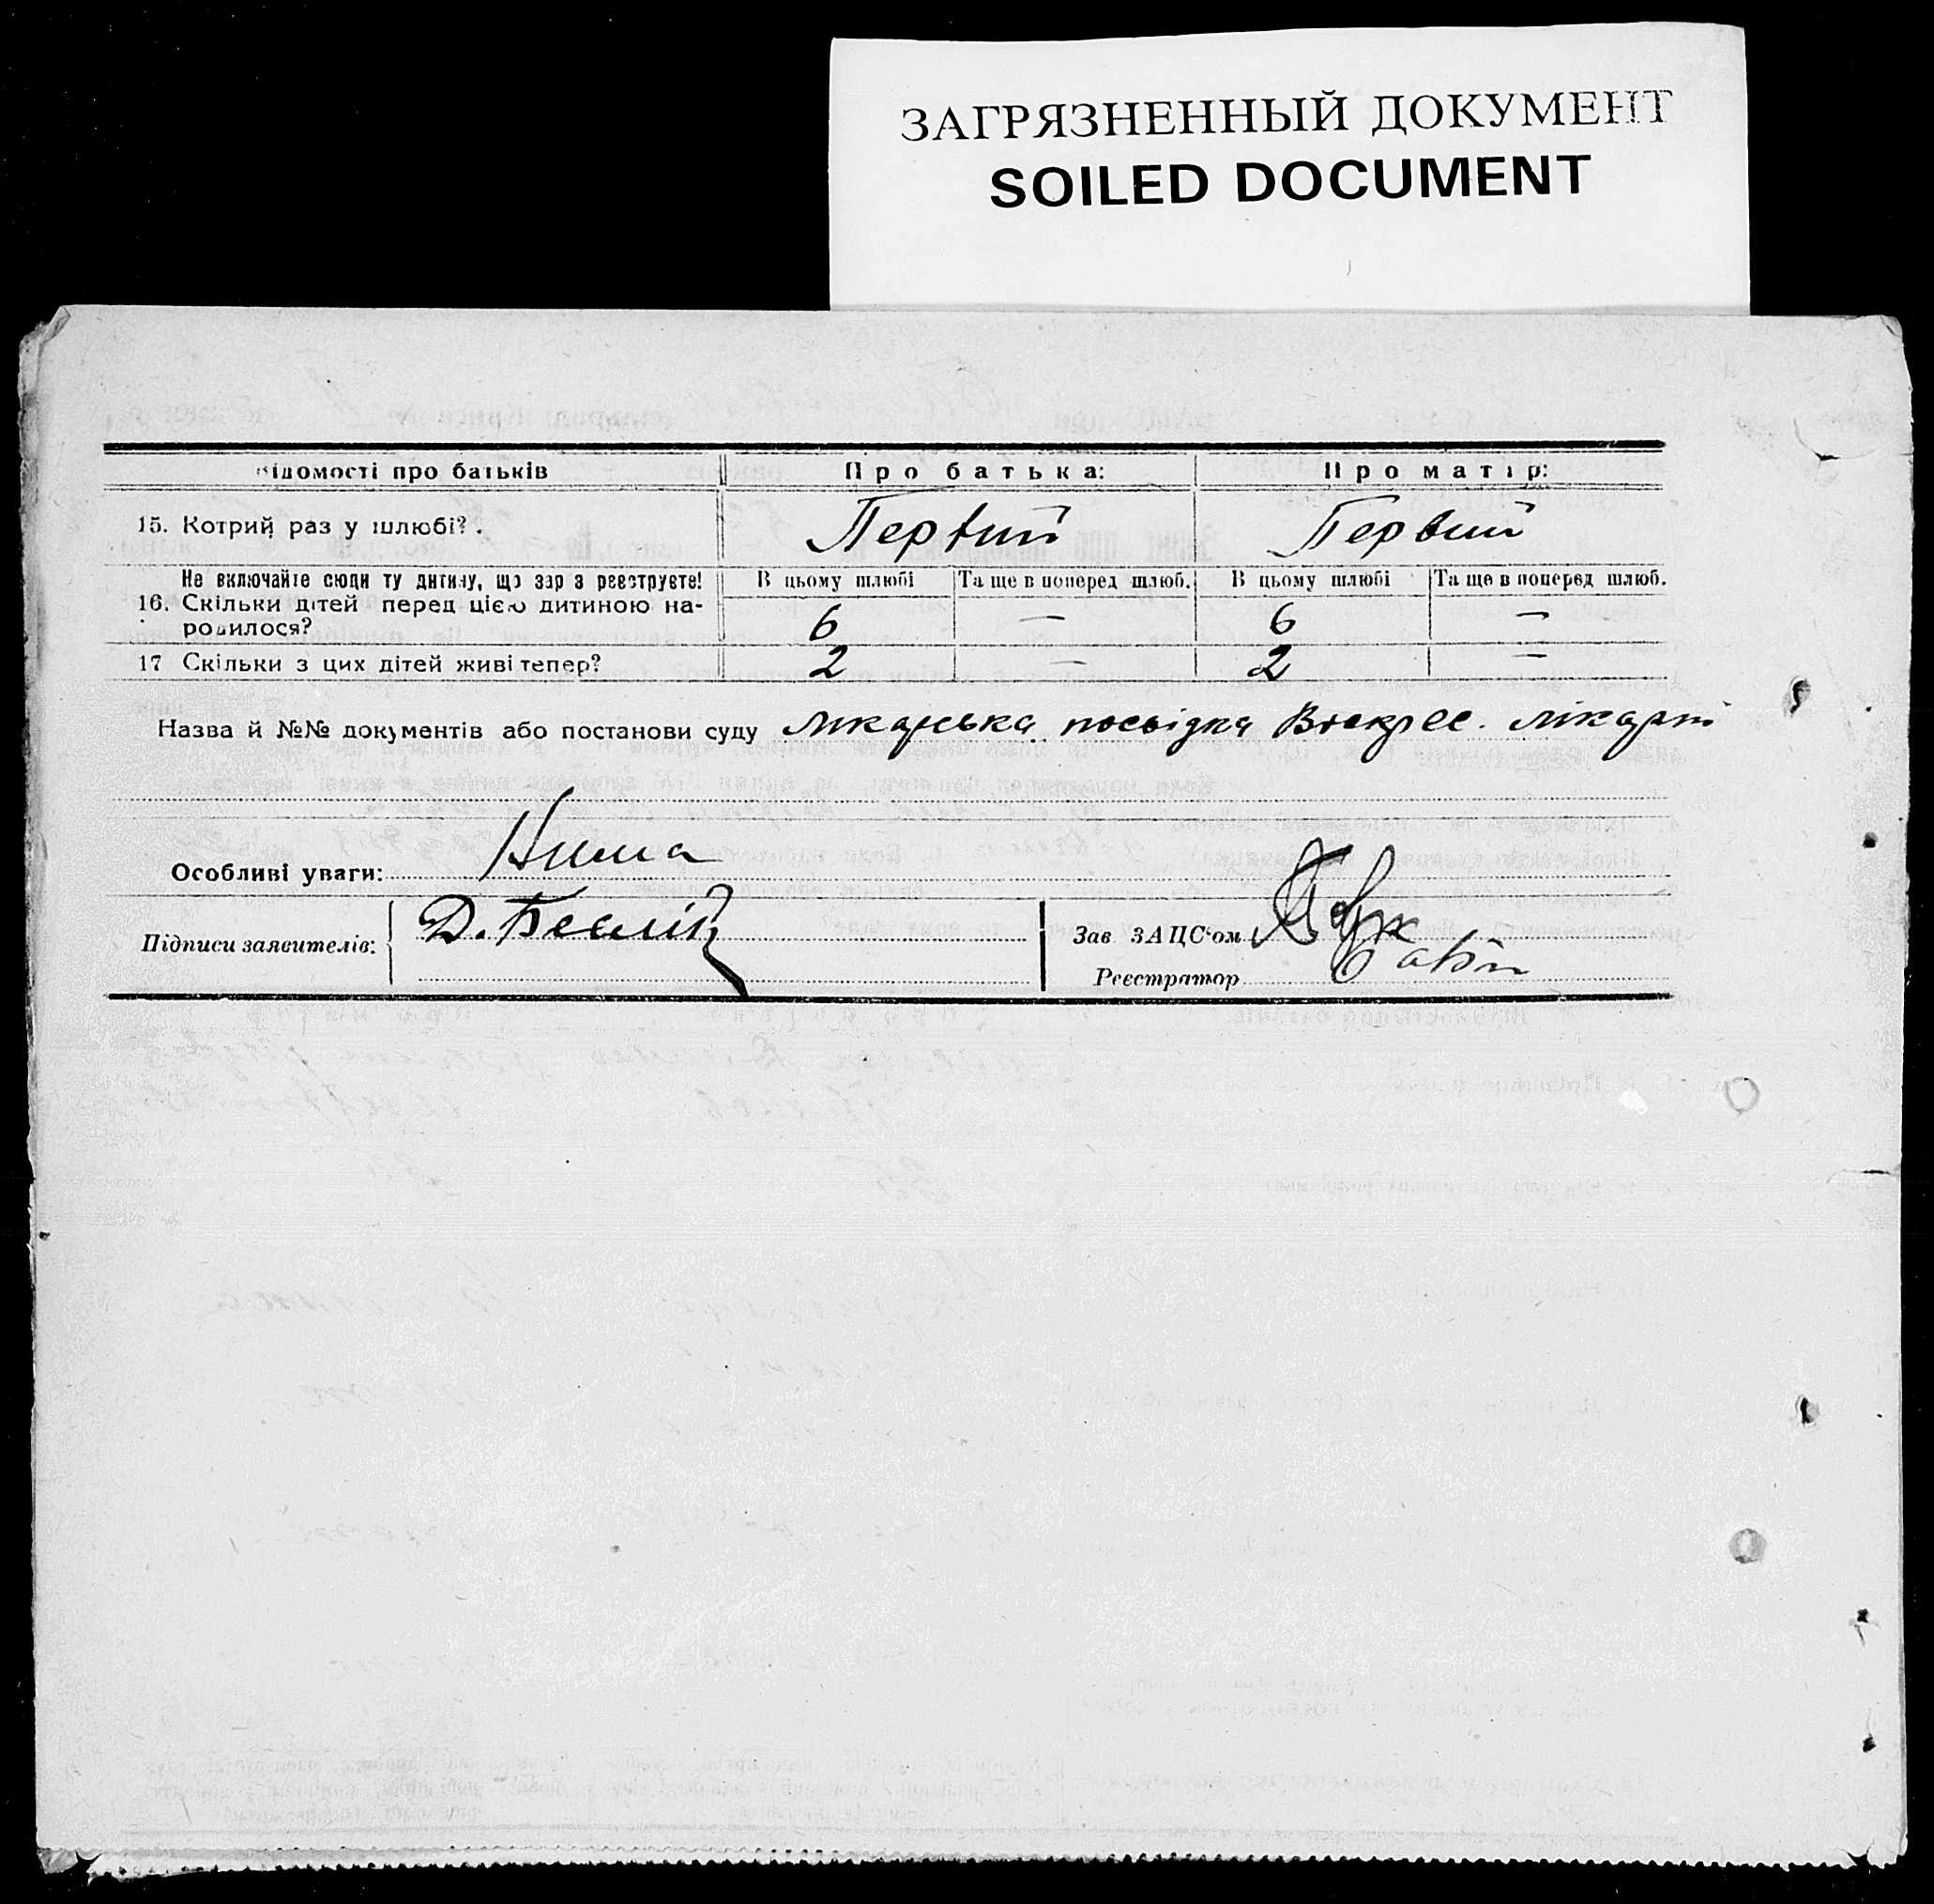 ЗАГРЯЗНЕННЫЙ ДОКУМЕНТ
SOILED DOCUMENT
Відомості про батьків Про батька: Про матір:
15. Котрий раз у шлюбі? . Первий Первий
Не включайте сюди ту дитину, що зараз реєструєте! В цьому шлюбі Та ще в поперед шлюб. В цьому шлюбі Та ще в поперед шлюб.
16. Скільки дітей перед цією дитиною на-
родилося? 6 — 6 —
17 Скільки з цих дітей живі тепер? 2 — 2 —
Назва й №№ документів або постанови суду лікарська посвідка Воскрес. лікарні
Особливі уваги: Нима
Підписи заявителів: Д.
Зав ЗАЦС'ом
Реєстратор